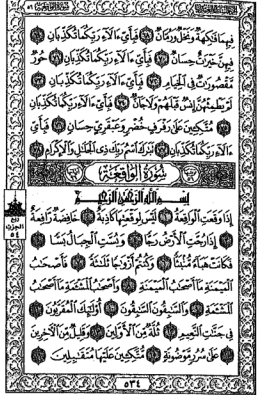 فِيهِمَا فَٰكِهَةٌ وَنَخْلٌ وَرُمَّانٌ ٦٨ فَبِأَيِّ ءَالَآءِ رَبِّكُمَا تُكَذِّبَانِ ٦٩
فِيهِنَّ خَيْرَٰتٌ حِسَانٌ ٧٠ فَبِأَيِّ ءَالَآءِ رَبِّكُمَا تُكَذِّبَانِ ٧١ حُورٌ
مَّقْصُورَٰتٌ فِي ٱلْخِيَامِ ٧٢ فَبِأَيِّ ءَالَآءِ رَبِّكُمَا تُكَذِّبَانِ ٧٣
لَمْ يَطْمِثْهُنَّ إِنسٌ قَبْلَهُمْ وَلَا جَآنٌّ ٧٤ فَبِأَيِّ ءَالَآءِ رَبِّكُمَا تُكَذِّبَانِ
٧٥ مُتَّكِـِٔينَ عَلَىٰ رَفْرَفٍ خُضْرٍ وَعَبْقَرِيٍّ حِسَانٍ ٧٦ فَبِأَيِّ
ءَالَآءِ رَبِّكُمَا تُكَذِّبَانِ ٧٧ تَبَٰرَكَ ٱسْمُ رَبِّكَ ذِي ٱلْجَلَٰلِ وَٱلْإِكْرَامِ ٧٨
سُورَةُ الوَاقِعَةِ
بِسْمِ ٱللَّهِ ٱلرَّحْمَٰنِ ٱلرَّحِيمِ
إِذَا وَقَعَتِ ٱلْوَاقِعَةُ ١ لَيْسَ لِوَقْعَتِهَا كَاذِبَةٌ ٢ خَافِضَةٌ رَّافِعَةٌ
٣ إِذَا رُجَّتِ ٱلْأَرْضُ رَجًّا ٤ وَبُسَّتِ ٱلْجِبَالُ بَسًّا ٥
فَكَانَتْ هَبَآءً مُّنۢبَثًّا ٦ وَكُنتُمْ أَزْوَٰجًا ثَلَٰثَةً ٧ فَأَصْحَٰبُ
ٱلْمَيْمَنَةِ مَآ أَصْحَٰبُ ٱلْمَيْمَنَةِ ٨ وَأَصْحَٰبُ ٱلْمَشْـَٔمَةِ مَآ أَصْحَٰبُ
ٱلْمَشْـَٔمَةِ ٩ وَٱلسَّٰبِقُونَ ٱلسَّٰبِقُونَ ١٠ أُو۟لَٰٓئِكَ ٱلْمُقَرَّبُونَ ١١
فِي جَنَّٰتِ ٱلنَّعِيمِ ١٢ ثُلَّةٌ مِّنَ ٱلْأَوَّلِينَ ١٣ وَقَلِيلٌ مِّنَ ٱلْـَٔاخِرِينَ
١٤ عَلَىٰ سُرُرٍ مَّوْضُونَةٍ ١٥ مُّتَّكِـِٔينَ عَلَيْهَا مُتَقَٰبِلِينَ ١٦
الحزب
٥٤
٥٣٤